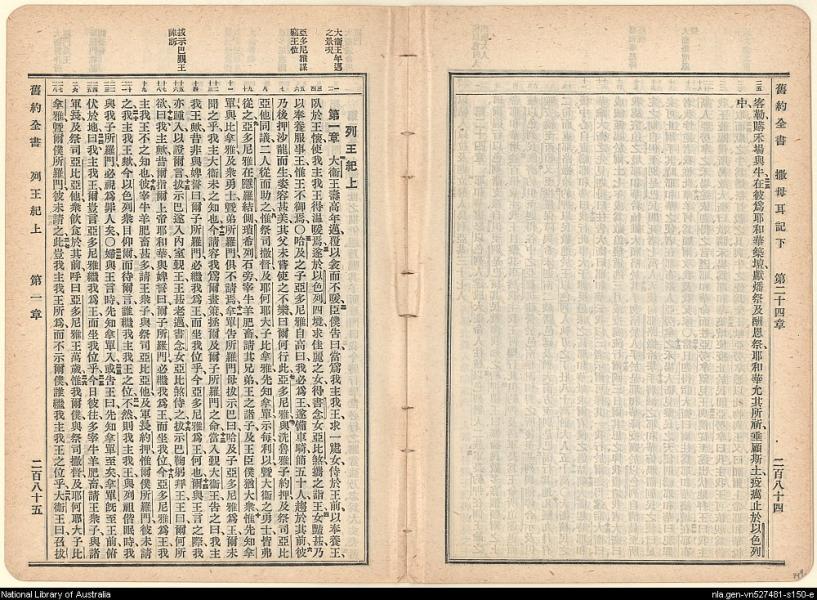 舊約全書 撒母耳記下 第二十四章 二百八十四
二五
客勒賭禾場與牛在彼爲耶和華築壇獻燔祭及酬恩祭耶和華允其所祈垂顧斯土疫癘止於以色列
中
大衛王年邁之景況
亞多尼雅謀竊王位
拔示巴覲王陳訴
列王紀上
第一章 大衛王壽高年邁覆以衾而不暖臣僕告曰當爲我主我王求一處女侍於王前以奉養王
臥於王懷使我主我王得溫暖焉遂於以色列四境求佳麗之女得書念女亞比煞攜之詣王女豔甚乃
以奉養服事王惟王不御焉〇哈及之子亞多尼雅自高曰我必爲王遂備車騎簡五十人趨於其前彼
乃後押沙龍而生姿容甚美其父未嘗使之不樂曰爾何行此亞多尼雅與洗魯雅子約押及祭司亞比
亞他同議二人從而助之惟祭司撒督及耶何耶大子比拿雅先知拿單示每利以暨大衛之勇士皆弗
從之亞多尼雅在隱羅結側瑣希列石旁宰牛羊肥畜請其兄弟王之諸子及王臣僕猶大衆惟先知拿
單與比拿雅及衆勇士暨弟所羅門俱不請焉拿單告所羅門母拔示巴曰哈及子亞多尼雅爲王爾未
聞之乎我主大衛未之知也今請容我爲爾畫策拯爾及爾子所羅門之命當入覲大衛王告之曰我主
我王歟昔非與婢誓曰爾子所羅門必繼我爲王而坐我位乎今亞多尼雅爲王何也爾與王言之際我
亦踵入以證爾言拔示巴遂入內室覲王王甚老邁書念女亞比煞侍之拔示巴鞠躬拜王王曰爾何所
欲曰我主歟昔爾指爾上帝耶和華與婢誓曰爾子所羅門必繼我爲王而坐我位今亞多尼雅爲王我
主我王不之知也彼宰牛羊肥畜甚多請王衆子與祭司亞比亞他及軍長約押惟爾僕所羅門彼未請
之我主我王歟今以色列衆目仰爾而待爾言誰繼我主我王之位不然則我主我王與列祖偕眠時我
與我子所羅門必視爲罪人矣〇婦與王言時先知拿單入或告王曰先知拿單至矣拿單旣至王前俯
伏於地曰我主我王爾豈言亞多尼雅繼我爲王而坐我位乎今日彼往多宰牛羊肥畜請王衆子與諸
軍長及祭司亞比亞他衆飲食於其前呼曰亞多尼雅王萬歲惟我爾僕與祭司撒督及耶何耶大子比
拿雅暨爾僕所羅門彼未請之此豈我主我王所爲而不示爾僕誰繼我主我王之位乎大衛王曰召拔
舊約全書 列王紀上 第一章 二百八十五
National Library of Australia
nla.gen-vn527481-s150-e